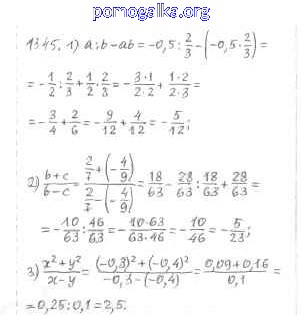 pomogalka.org
1345. 1) a:b-ab=-0,5:2/3-(-0,5·2/3)=
=-1/2:2/3+1/2·2/3=-3·1/2·2+1·2/2·3=
=-3/4+2/6=-9/12+4/12=-5/12;
2) b+c/b-c=2/7+(-4/9)/2/7-(-4/9)=18/63-28/63:18/63+28/63=
=-10/63:46/63=-10·63/63·46=-10/46=-5/23;
3) x²+y²/x-y=(-0,3)²+(-0,4)²/-0,3-(-0,4)=0,09+0,16/0,1=
=0,25:0,1=2,5.